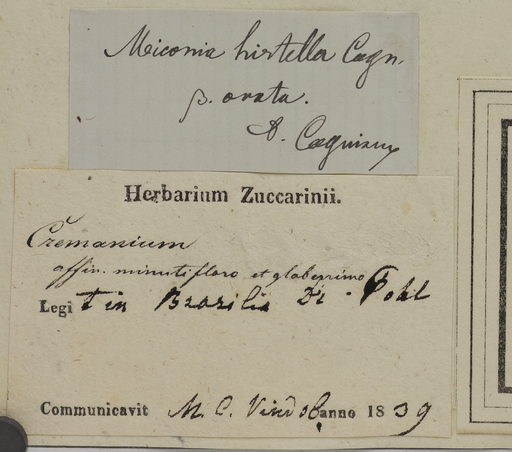 Miconia hirtella Cogn.
β. ovata.
A. Cogniaux
Herbarium Zuccarinii.
Cremanium
affin. minutifloro et glaberrimo
Legit in Brasilia Dr. Pohl
Communicavit M. C. Vindob anno 1839